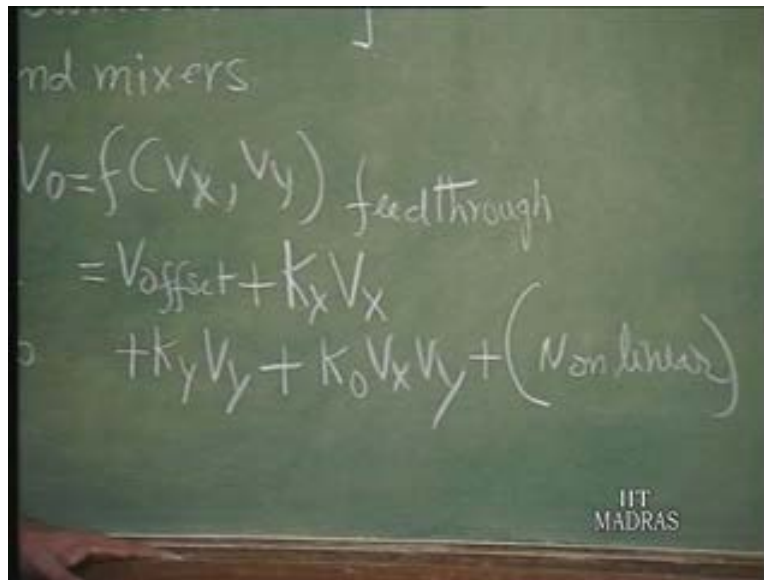 nd mixers
V0=f(Vx, Vy) feedthrough
= Voffset + Kx Vx
+ Ky Vy + K0 Vx Vy + (Non linear)
IIT
MADRAS